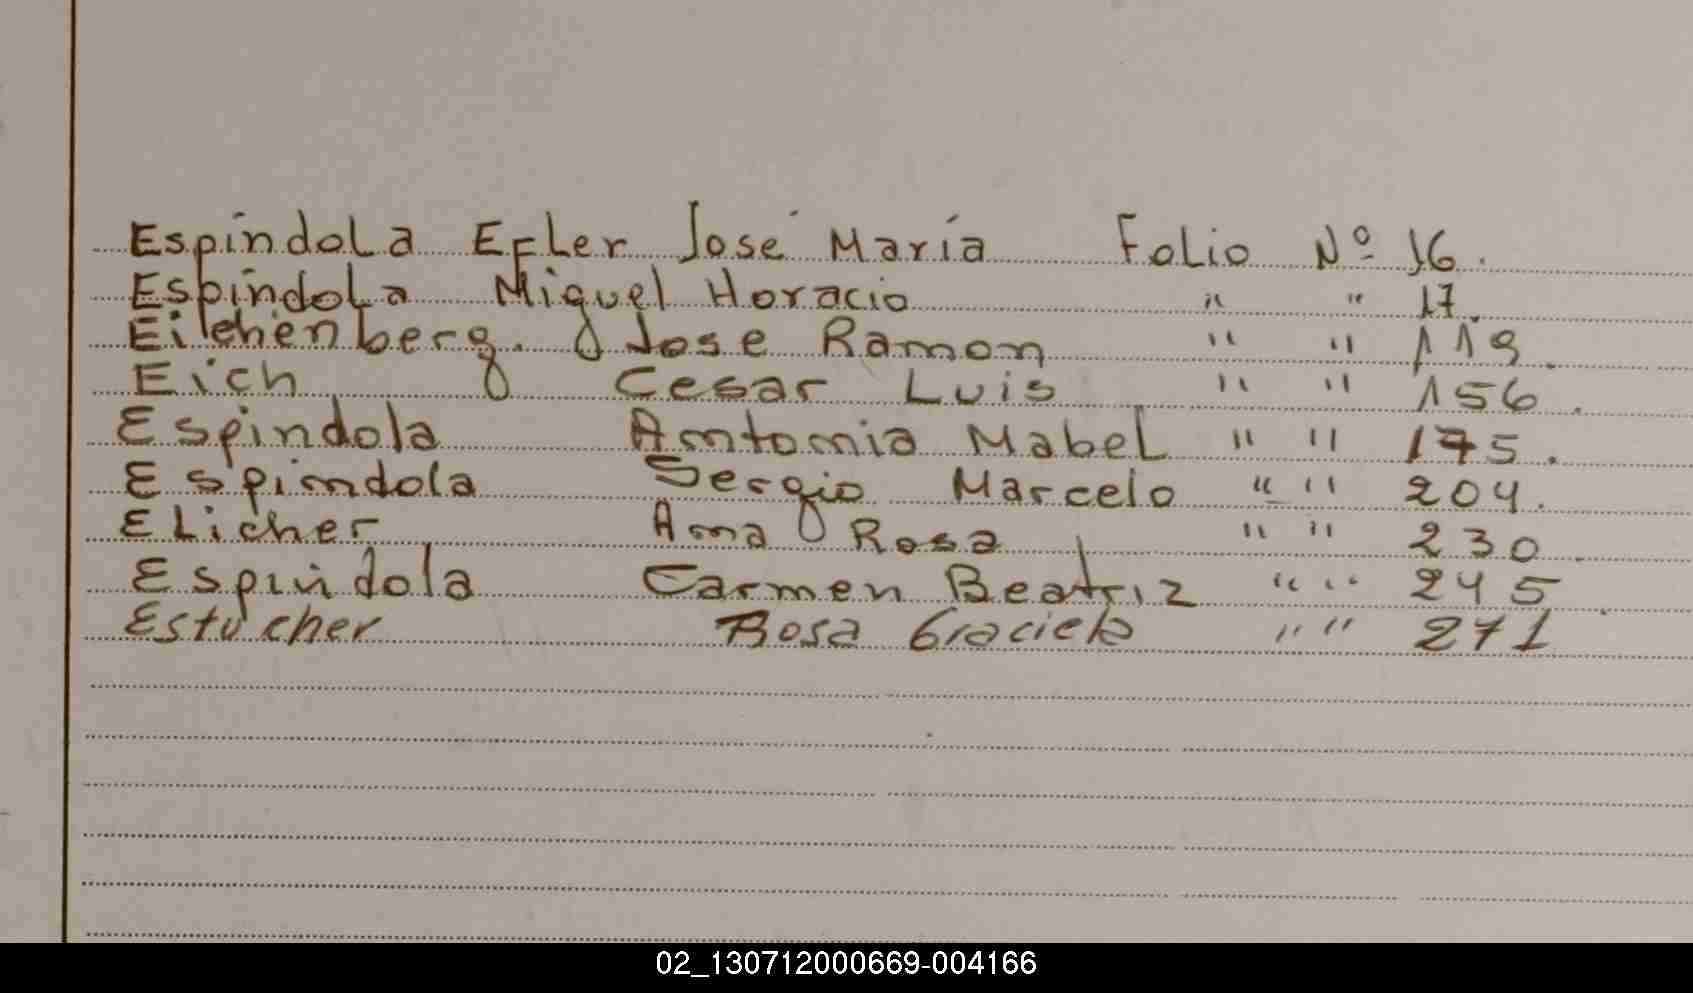 Espíndola Efler José María Folio Nº 16.
Espíndola Miguel Horacio " " 17.
Eilchenberg. Jose Ramon " " 119.
Eich Cesar Luis " " 156.
Espindola Antonia Mabel " " 175.
Espindola Sergio Marcelo " " 204.
Elicher Ana Rosa " " 230.
Espindola Carmen Beatriz " " 245.
Estucher Rosa Graciela " " 271
02_130712000669-004166